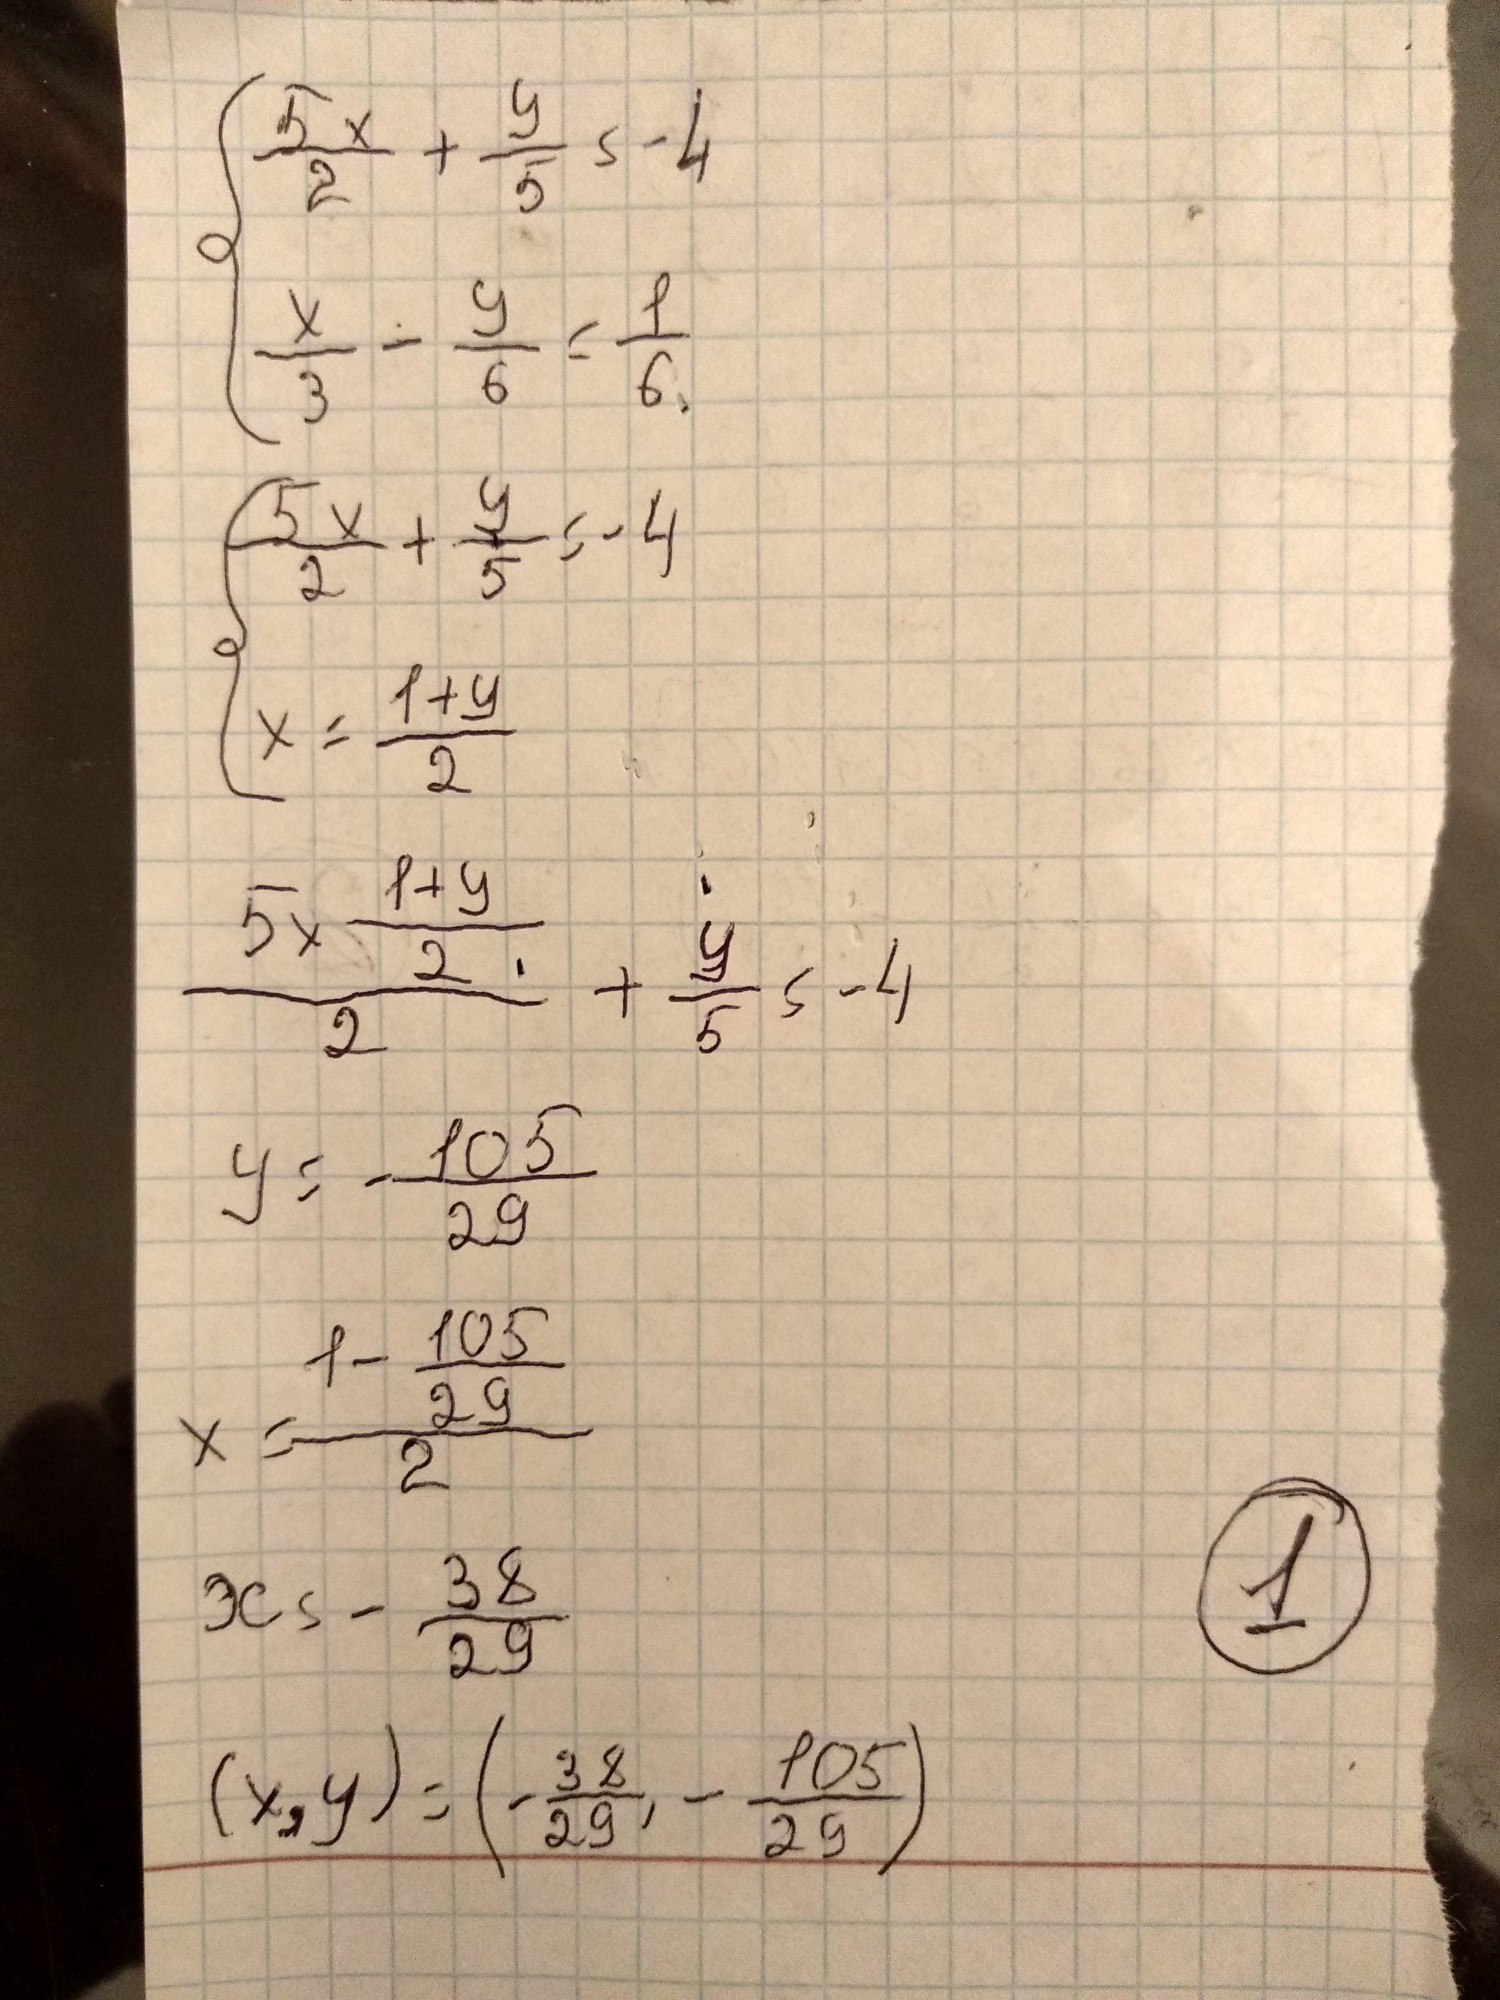 { 5x/2 + y/5 = -4
x/3 - y/6 = 1/6
{ 5x/2 + y/5 = -4
x = 1+y/2
5x 1+y/2 /2 + y/5 = -4
y = - 105/29
x = 1 - 105/29 /2
x = - 38/29
1
(x, y) = (- 38/29, - 105/29)